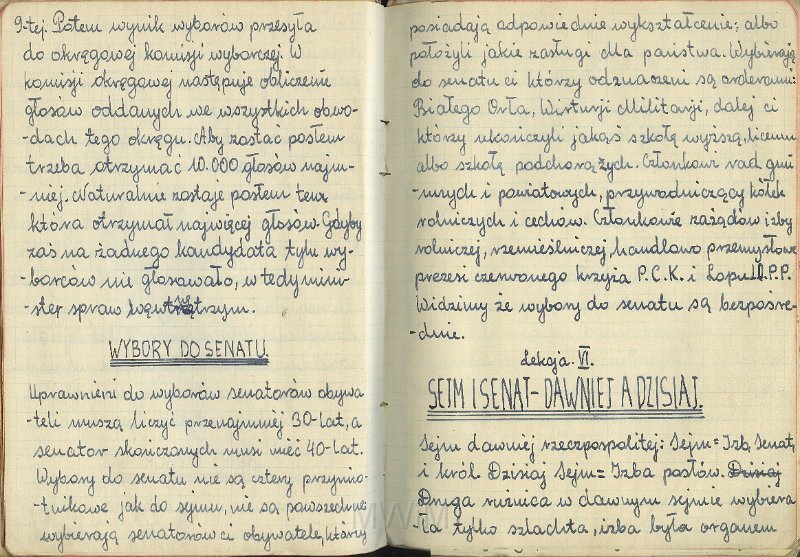 9-tej. Potem wynik wyborów przesyła
do okręgowej komisji wyborczej. W
komisji okręgowej następuje obliczenie
głosów oddanych we wszystkich obwo-
-dach tego okręgu. Aby zostać posłem
trzeba otrzymać 10.000 głosów najm-
-niej. Naturalnie zostaje posłem ten
która otrzymał najwięcej głosów. Gdyby
zaś na żadnego kandydata tylu wy-
-borców nie głosowało, wtedy mini-
-ster spraw trzym.
WYBORY DO SENATU.
Uprawnieni do wyborów senatorów obywa-
-teli muszą liczyć przenajmniej 30-lat, a
senator skończonych musi mieć 40-lat.
Wybory do senatu nie są cztery przymio-
-tnikowe jak do sejmu, nie są powszechne
wybierają senatorów ci obywatele, którzy
posiadają odpowiednie wykształcenie; albo
położyli jakie zasługi dla państwa. Wybierają
do senatu ci którzy odznaczeni są orderami:
Białego Orła, Wirturji Militarji, dalej ci
którzy ukończyli jakąś szkołę wyższą, liceum
albo szkołę podchorążych. Członkowi rad gmi
-nnych i powiatowych, przywodniczący kółek
rolniczych i cechów. Członkowie zarządów izby
rolniczej, rzemieślniczej, handlowo przemysłowe
prezesi czerwonego krzyża P.C.K. i L.O.P.P.
Widzimy że wybory do senatu są bezpośre-
-dnie.
Lekcja. VI.
SEJM I SENAT - DAWNIEJ A DZISIAJ.
Sejm dawniej rzeczpospolitej: Sejm = Izb, Senat,
i król Dzisiaj Sejm = Izba posłów. Dzisiaj
Druga różnica w dawnym sejmie wybiera
-ła tylko szlachta, izba była organem
MWM